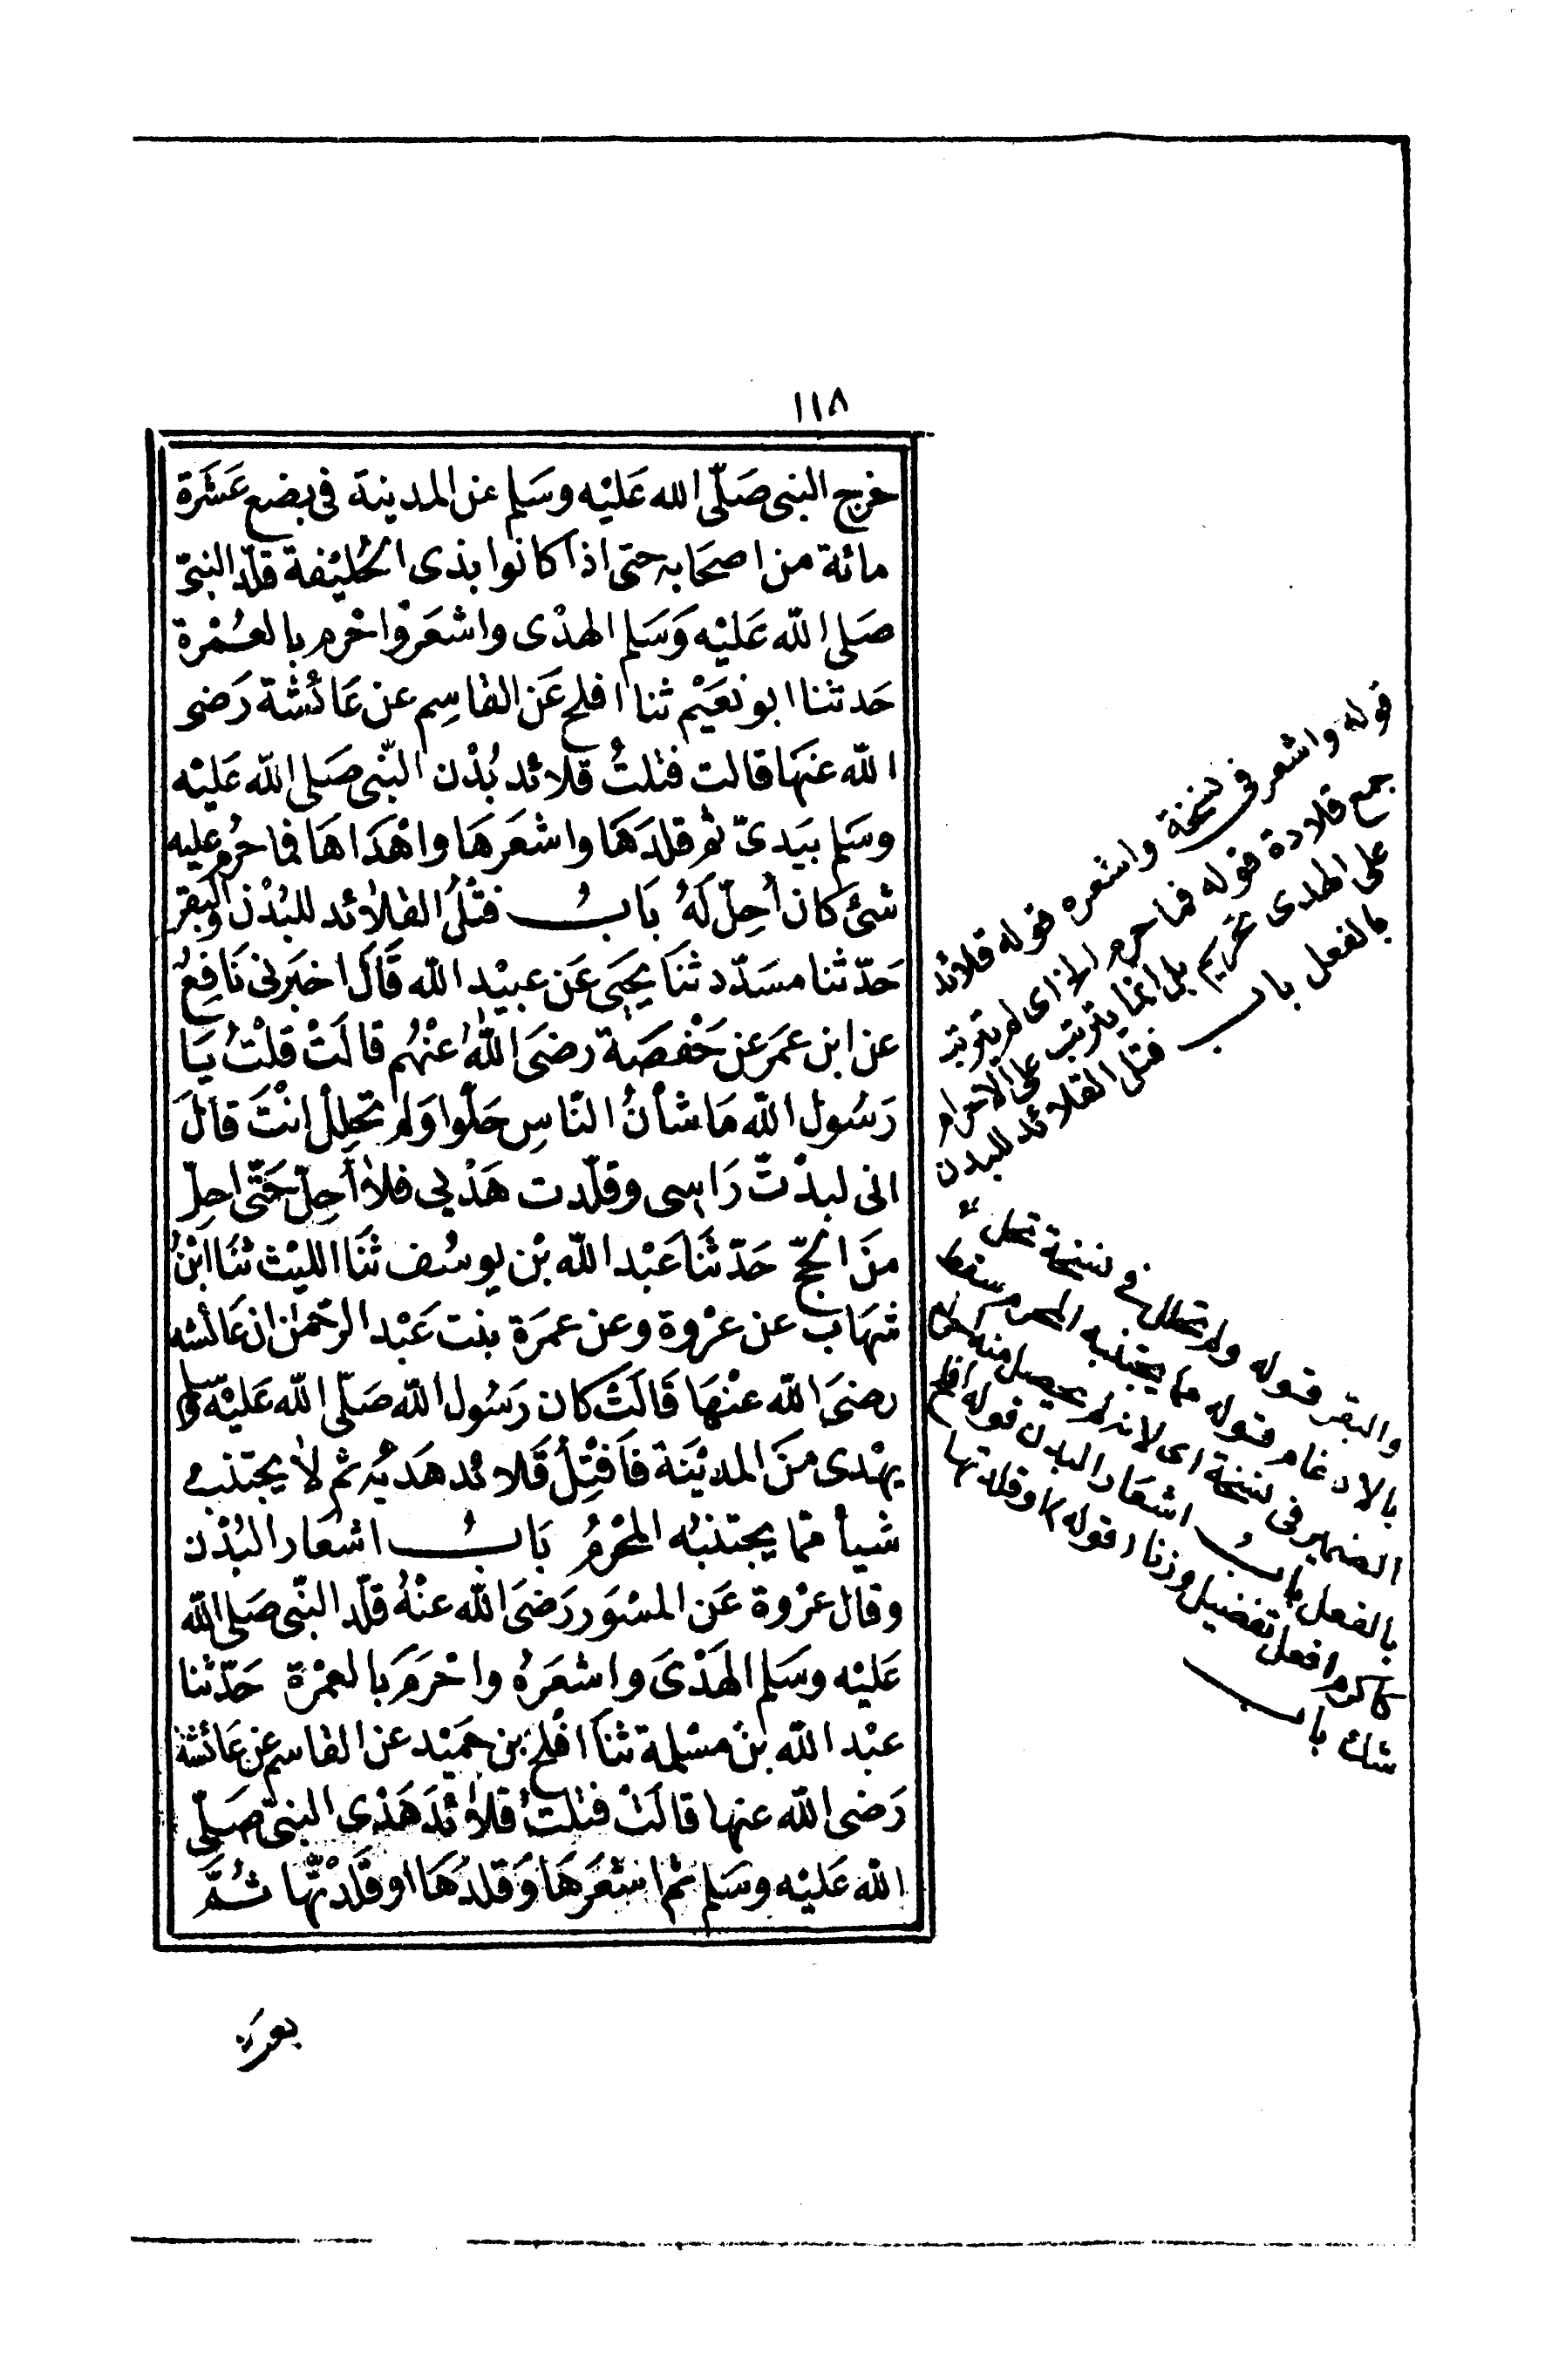 ١١٨
خرج النبى صَلّى الله عَليْه وسَلم عن المدينة فى بضع عَشَرَة
مائة من اصحَابه حتى اذا كانوا بذى الحُليْفة قلّد النبىّ
صَلى الله عَليْه وَسَلم الهدْى واشعَرَ واحْرم بالعُمْرة
حَدثنا ابو نعَيْم ثنا افلح عَن القاسِم عن عَائشة رَضى
الله عنهَا قالت فتلتُ قلائد بُدْن النّبى صَلى الله عَليْه
وسَلم بيَدىّ ثم قلدَهَا واشعَرَهَا واهْدَاهَا فما حرُم عليه
شئ كان أُحِلّ لَهُ بَابُ فتْلُ القلائد للبُدْن والبَقر
حَدّثنا مسَدّد ثنَا يحَيَى عَن عبيْد الله قَالَ اخبَرنى نَافِعٌ
عن ابن عمَر عن حَفْصَة رضىَ اللهُ عنْهُم قالَتْ قلْتُ يَا
رَسُول الله مَا شأنُ النّاسِ حَلّوا وَلم تحلِلْ انْتَ قالَ
انى لبدْتّ رَاسى وقلّدت هَدْيى فلا أُحِلّ حَتّى احِلّ
منَ الحجّ حَدّثنَا عَبْد الله بْن يوسُف ثنَا الليْث ثنَا ابْنُ
شهَاب عن عرْوة وعن عمرَة بنت عَبْد الرّحمٰن ان عَائشه
رضىَ الله عنْهَا قَالَتْ كان رَسُول الله صَلّى الله عَليْه وسلم
يهْدى منَ المديْنَة فَافْتِلُ قَلائد هَديْه ثم لا يجتنبُ
شيأ ممّا يجتنبُه المحْرمُ بَابُ اشعَار البُدْن
وقال عرْوة عَن المسْوَر رَضىَ الله عنْهُ قلّد النّبى صَلى الله
عَليْه وسَلم الهَدْىَ واشعَرَهُ واحْرَمَ بالعمْرة حَدّثنا
عبْد الله بنُ مسْلمة ثنَا افْلح بن حمَيْد عن القاسم عن عَائشة
رَضى الله عنها قالَتْ فتلتُ قلائدَ هَدْى النبىّ صَلّى
الله عَليْه وسَلم ثم اشعَرَهَا وَقلدَهَا او قَلّدْتّها ثُمَّ
قوله واشعر فى نسخة واشعره قوله قلائد
جمع قلادة قوله فما حرم الخ اى لم يترتب
على الهدى تحريم بل انما يترتب على الاحرام
بالفعل باب فتل القلائد للبدن
والبقر قوله ولم تحلل فى نسخة تحل
بالادغام قوله مما يجتنبه المحرم سقط
الضمير فى نسخة اى لانه لم يحصل منه احرام
بالفعل باب اشعار البدن قوله افلح
كاكرم افعل تفضيل وزنا قوله او قلدتها
شك باب